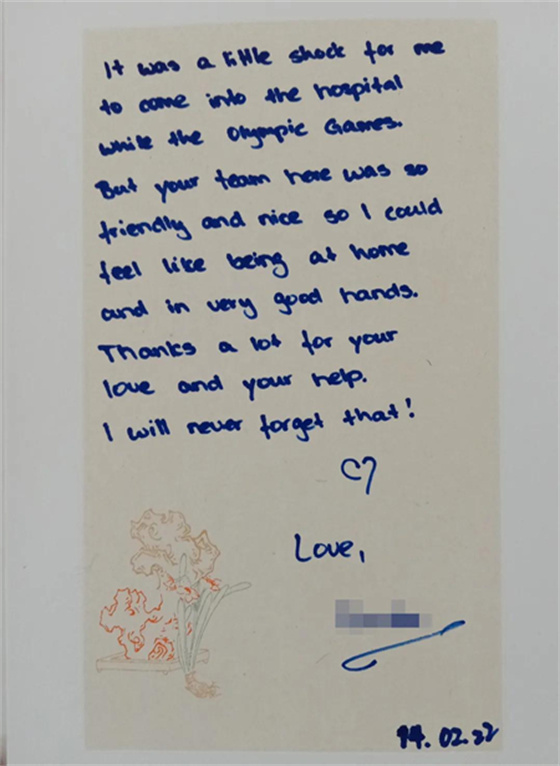 It was a little shock for me
to come into the hospital
while the Olympic Games.
But your team here was so
friendly and nice so I could
feel like being at home
and in very good hands.
Thanks a lot for your
love and your help.
I will never forget that!
Love,
14.02.22